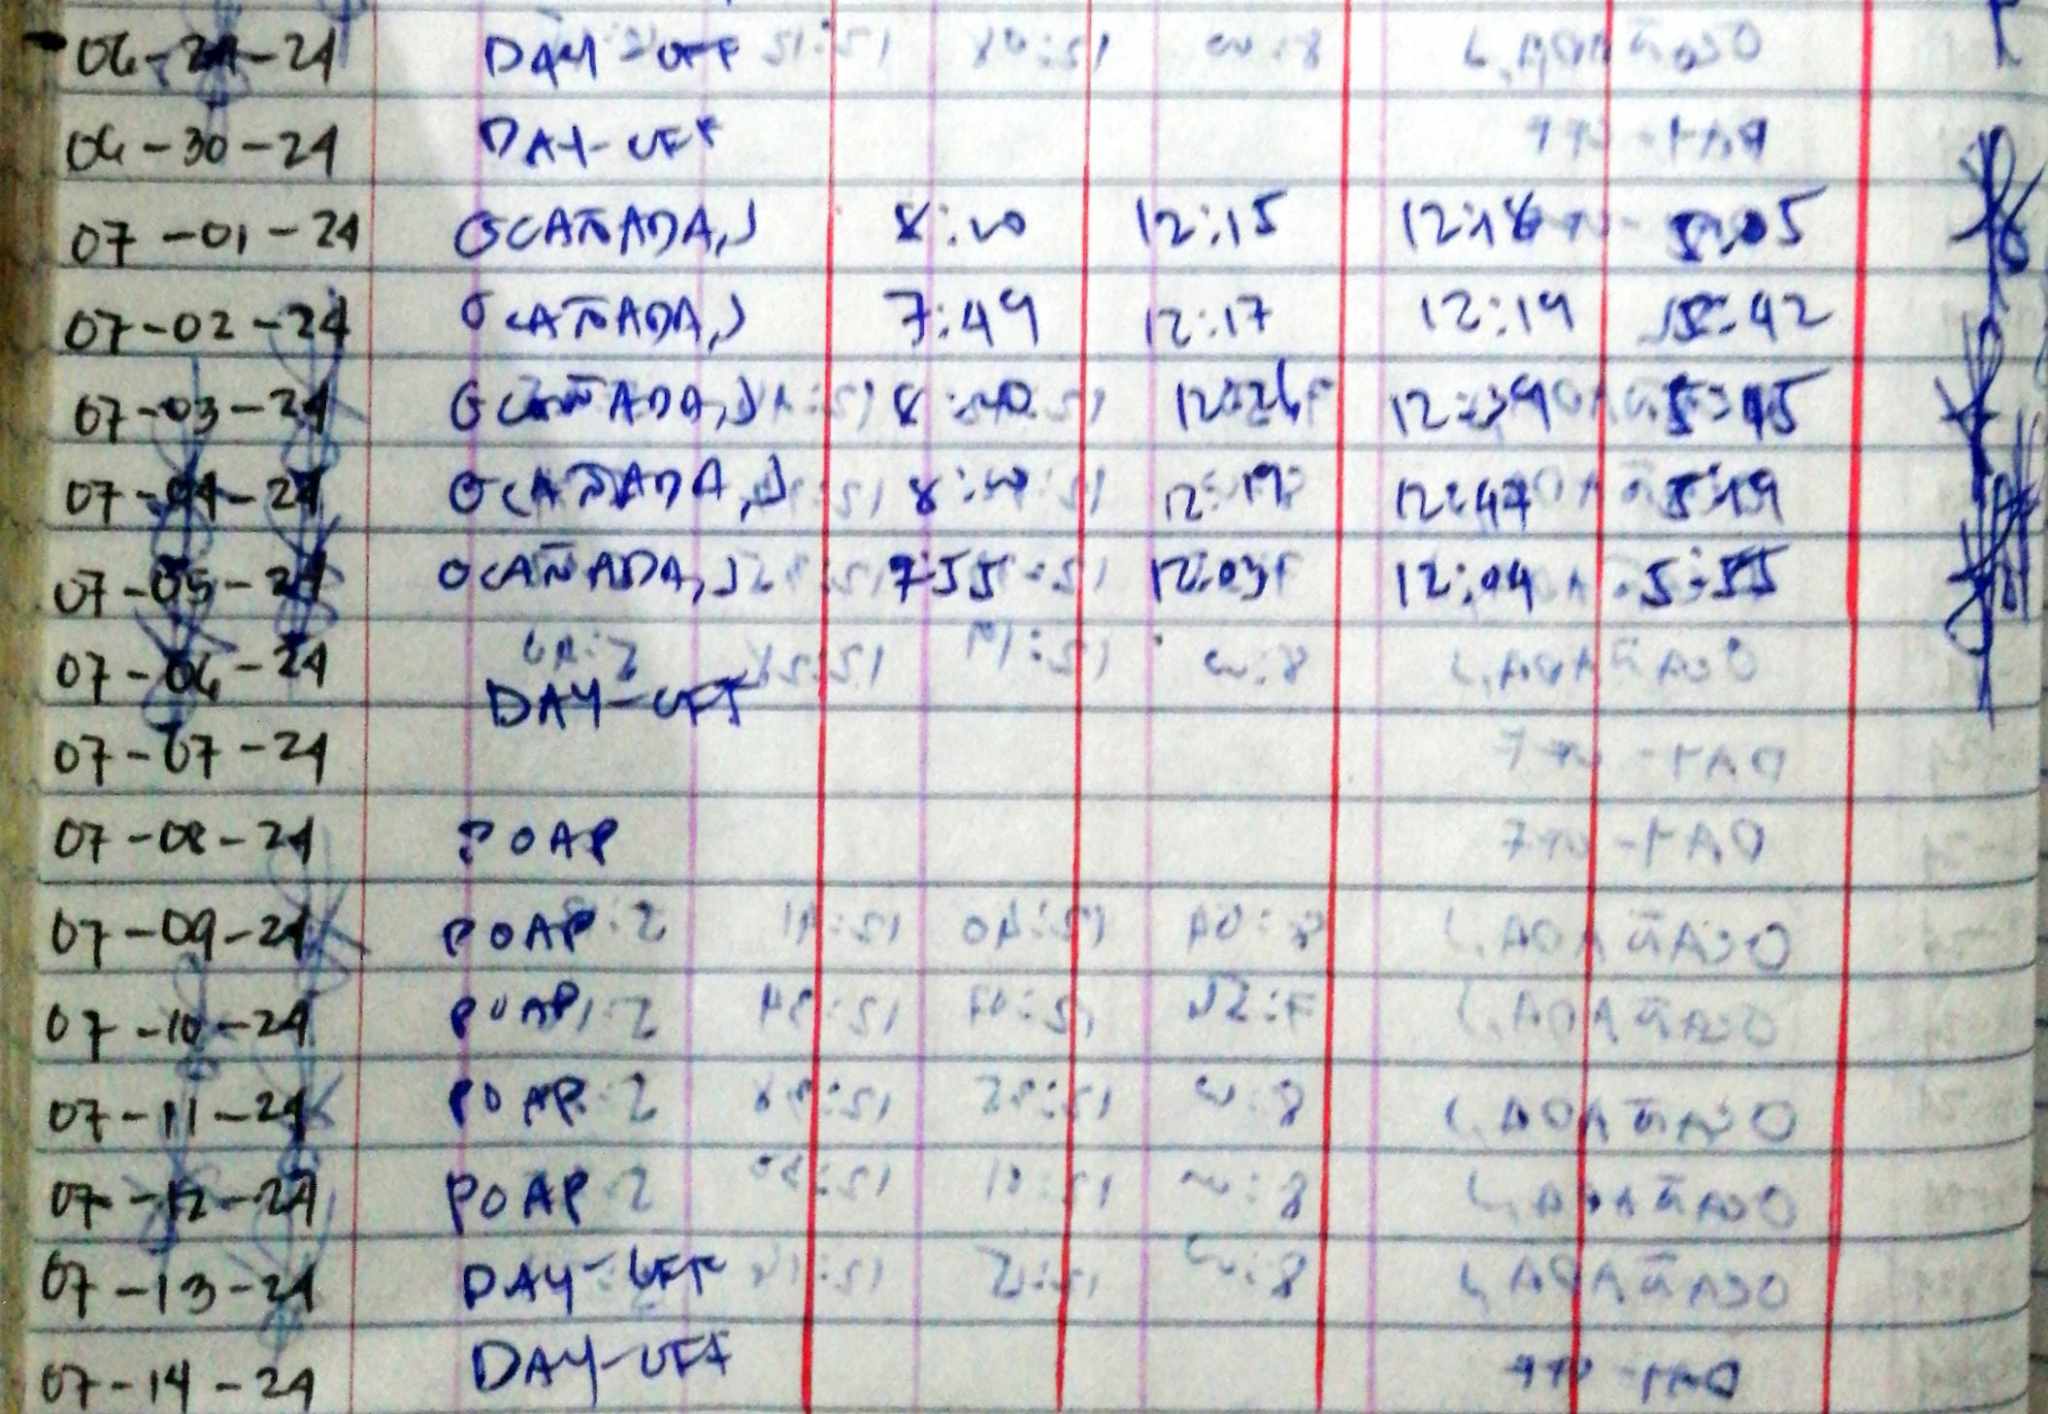 06-29-24 DAY-OFF
06-30-24 DAY-OFF
07-01-24 OCAÑADA, J 8:00 12:15 12:18 5:05
07-02-24 OCAÑADA, J 7:49 12:17 12:19 5:42
07-03-24 OCAÑADA, J 8:00 12:26 12:39
07-04-24 OCAÑADA, J 8:00 12:19 12:47 5:19
07-05-24 OCAÑADA, J 7:55 12:03 12:04 5:55
07-06-24
DAY-OFF
07-07-24
07-08-24 POAP
07-09-24 POAP
07-10-24 POAP
07-11-24 POAP
07-12-24 POAP
07-13-24 DAY-OFF
07-14-24 DAY-OFF